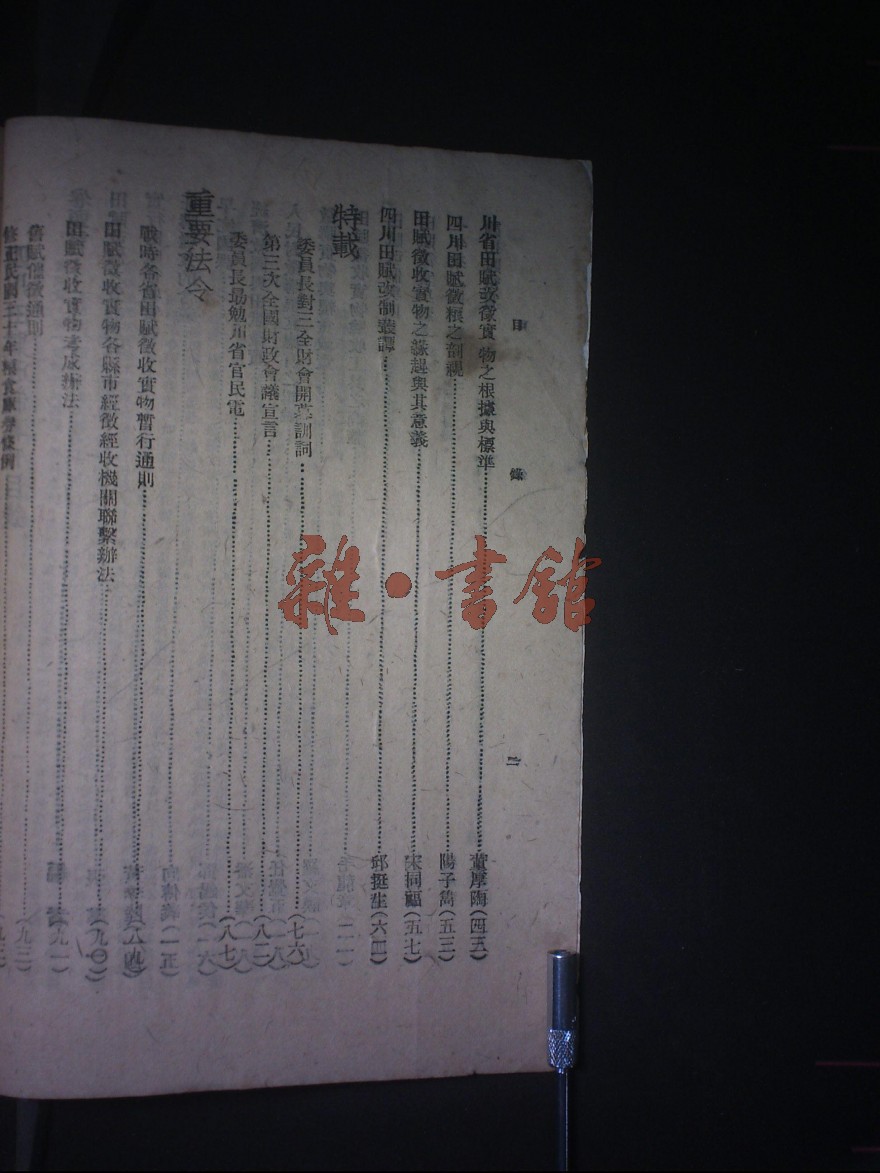 目錄 二
川省田賦改徵實物之根據與標準……董厚陶(四五)
四川田賦徵糧之剖視……陽子篤(五三)
田賦徵收實物之緣起與其意義……宋同福(五七)
四川田賦改制叢譚……邱挺生(六四)
特載
委員長對三全財會開幕訓詞……(七六)
第三次全國財政會議宣言……(八二)
委員長勗勉川省官民電……(八七)
重要法令
戰時各省田賦徵收實物暫行通則……(八九)
田賦徵收實物各縣市經徵經收機關聯繫辦法……(九〇)
田賦徵收實物考成辦法……(九一)
舊賦催徵通則……(九三)
修正民國三十年糧食庫券條例
雜·書館